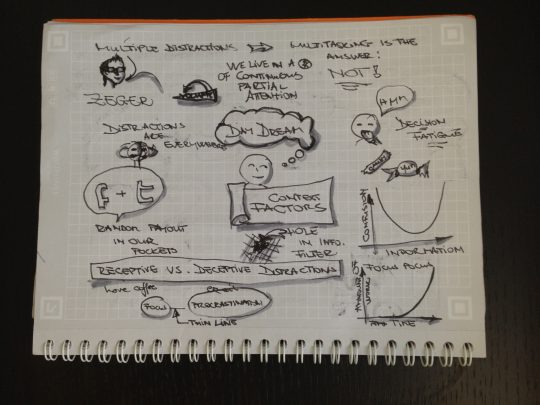 MULTIPLE DISTRACTIONS ⇒ MULTITASKING IS THE
ANSWER:
NOT!
ZEGER
WE LIVE IN A
OF CONTINUOUS
PARTIAL
ATTENTION
HMM
DISTRACTIONS
ARE
EVERYWHERE
DAY DREAM
DECISION
FATIGUE
F + t
YUM
CONTEXT
FACTORS
RANDOM PAYOUT
IN OUR
POCKETS
HOLE
IN INFO.
FILTER
CONFUSION
INFORMATION
RECEPTIVE VS. DECEPTIVE DISTRACTIONS
FOCUS
PROCRASTINATION
THIN LINE
FOCUS FOCUS
WORK
TIME